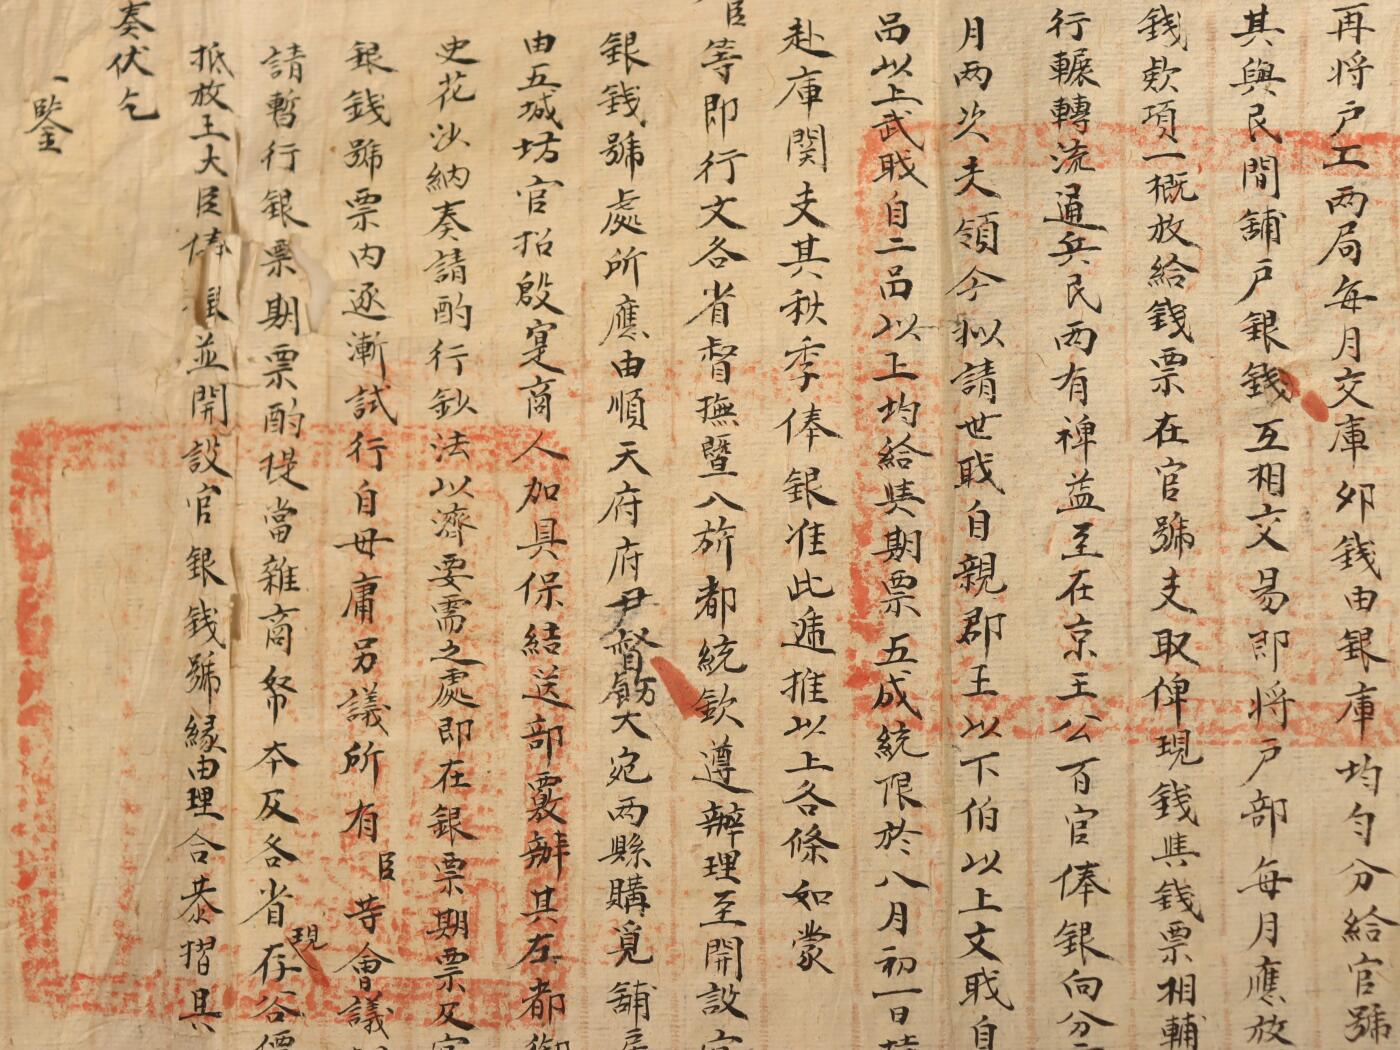 再將戶工两局每月交庫夘錢由銀庫均勻分給官號
其與民間舖戶銀錢互相交易即將戶部每月應放
錢欵項一概放給錢票在官號支取俾現錢與錢票相輔
行輾轉流通兵民两有裨益至在京王公百官俸銀向分
月两次支領今拟請世戝自親郡王以下伯以上文戝自
品以上武戝自二品以上均給與期票五成統限於八月初一日
赴庫関支其秋季俸銀准此遞推以上各條如蒙
臣等即行文各省督撫暨八旂都統欽遵辦理至開設官
銀錢號處所應由順天府府尹督飭大宛两縣購覓舖房
由五城坊官招殷寔商人加具保結送部覈辦其左都御
史花沙納奏請酌行鈔法以濟要需之處即在銀票期票及官
銀錢號票内逐漸試行自毋庸另議所有臣等會議
請暫行銀票期票酌提當雜商帑本及各省存谷價現
抵放王大臣俸銀並開設官銀錢號緣由理合恭摺具
奏伏乞
鑒